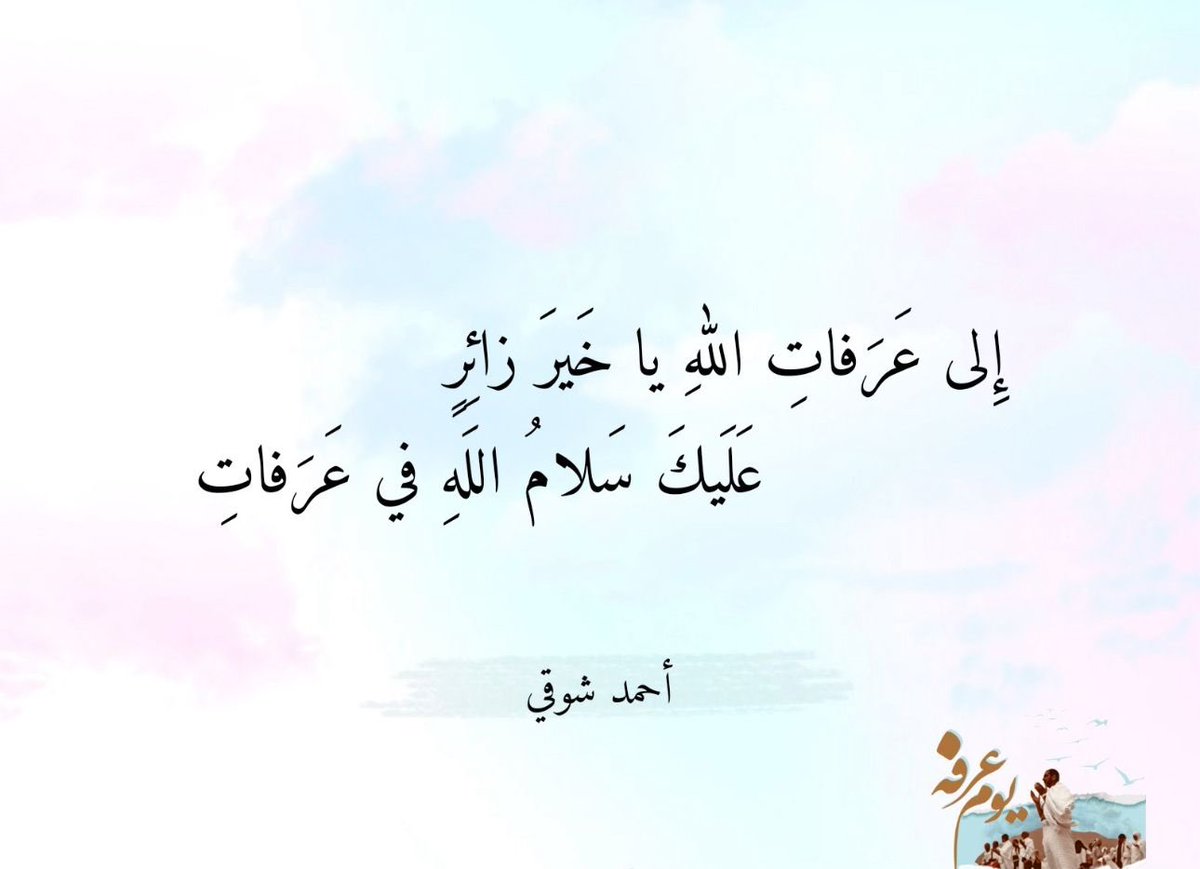 إِلى عَرَفاتِ اللهِ يا خَيرَ زائِرٍ
عَلَيكَ سَلامُ اللَهِ في عَرَفاتِ
أحمد شوقي
يوم عرفه